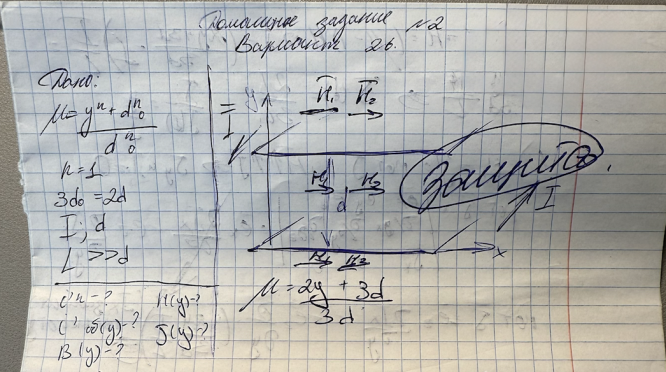 Домашнее задание №2
Вариант 26.
Дано:
μ = yⁿ + d₀ⁿ
d₀ⁿ
n=1
3d₀ = 2d
I, d
L >> d
H(y)-?
B(y)-?
I
y
H₁ H₂
H₁ H₂
d
H₁ H₂
x
I
Защита.
μ = 2y + 3d
3d